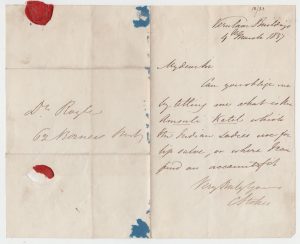 Dr Royle
62 Berners Street
4th March 1837
My dear Sir
Can you oblige me
by telling me what is the
Katel which
the Indian Ladies use for
lip salve, or where I can
find an account of it
Very truly yours